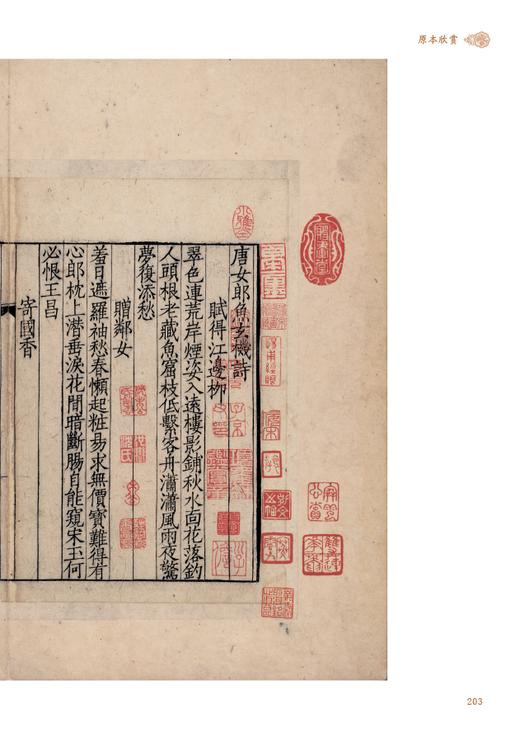 原本欣賞
唐女郎魚玄機詩
賦得江邊柳
翠色連荒岸煙姿入遠樓影鋪秋水面花落釣
人頭根老藏魚窟枝低繫客舟瀟瀟風雨夜驚
夢復添愁
贈鄰女
羞日遮羅袖愁春懶起粧易求無價寶難得有
心郎枕上潛垂淚花間暗斷腸自能窺宋玉何
必恨王昌
寄國香
203